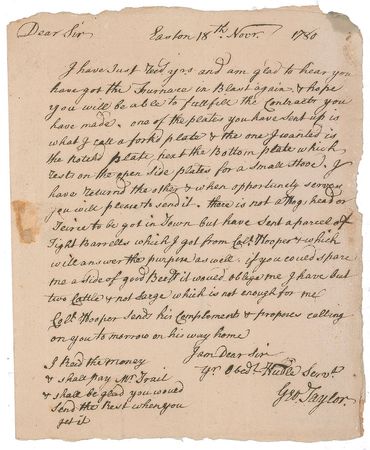 Dear Sir Easton 18th Novr. 1780
I have Just Recd yrs and am glad to hear you
have got the Furnace in Blast again & hope
you will be able to fullfill the Contracts you
have made. one of the plates you have sent up is
what I call a forkd plate & the one I wanted is
the notchd plate next the Bottom plate which
rests on the open side plates for a small Stove. I
have returned the other & when opportunity serves
you will please to send it. there is not a Hogshead or
Teirce to be got in Town but have sent a parcel of
Tight Barrells which I got from Colo. Hooper & which
will answer the purpose as well. if you could spare
me a side of good Beeff it would oblige me I have but
two Cattle & not Large which is not enough for me
Colo. Hooper Sends his Complements & proposes calling
on you to morrow on his way home
I am Dear Sir
Yr. Obedt. Huble Servt.
Geo. Taylor.
I Recd the money
& shall pay Mr. Trail
& shall be glad you would
send the Rest when you
get it